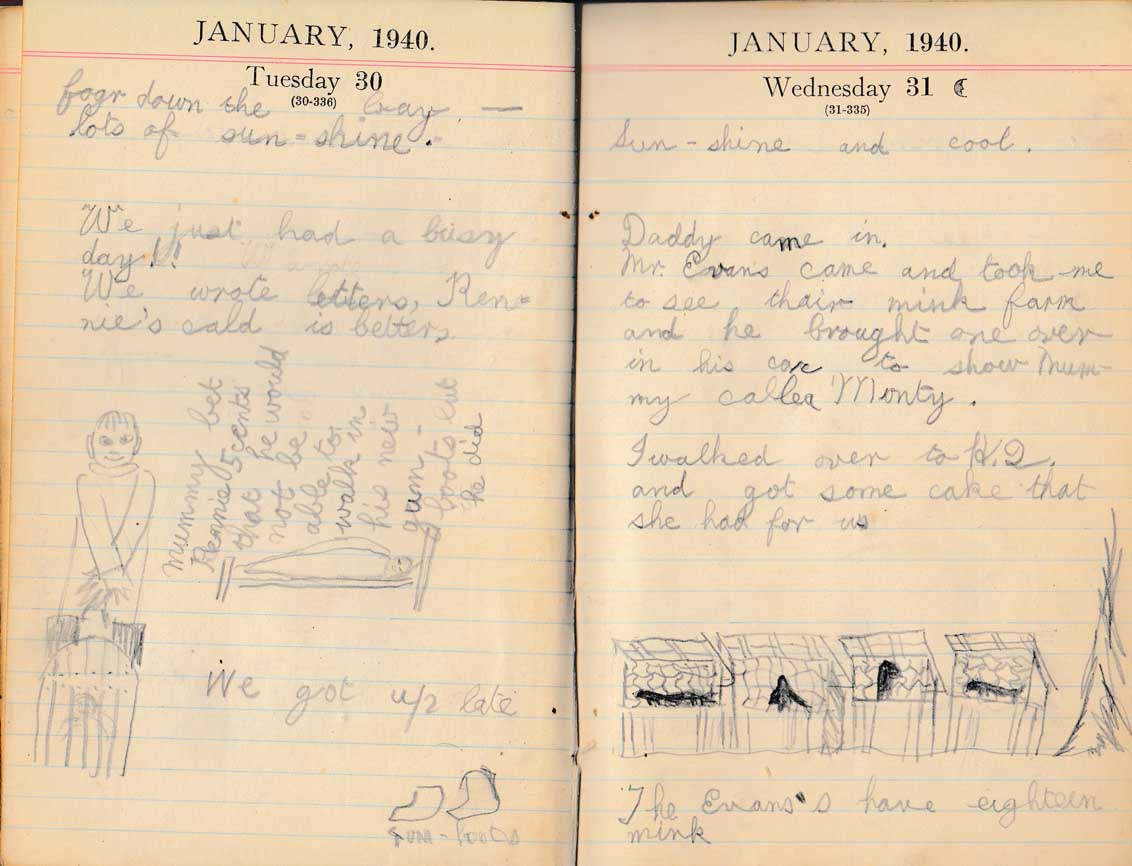 JANUARY, 1940.
Tuesday 30
(30-336)
fogr down the bay —
lots of sun-shine.
We just had a busy
day!!
We wrote letters, Ren=
nie's cald is betters.
Mummy bet
Rennie 5 cents
that he would
not be
able to
walk in
his new
gum-
boots but
he did
We got up late
gum-boots
JANUARY, 1940.
Wednesday 31
(31-335)
Sun-shine and cool.
Daddy came in.
Mr. Evans came and took me
to see thair mink farm
and he brought one over
in his car to show Mum-
my callea Monty.
I walked over to H.Q.
and got some cake that
she had for us
The Evans's have eighteen
mink